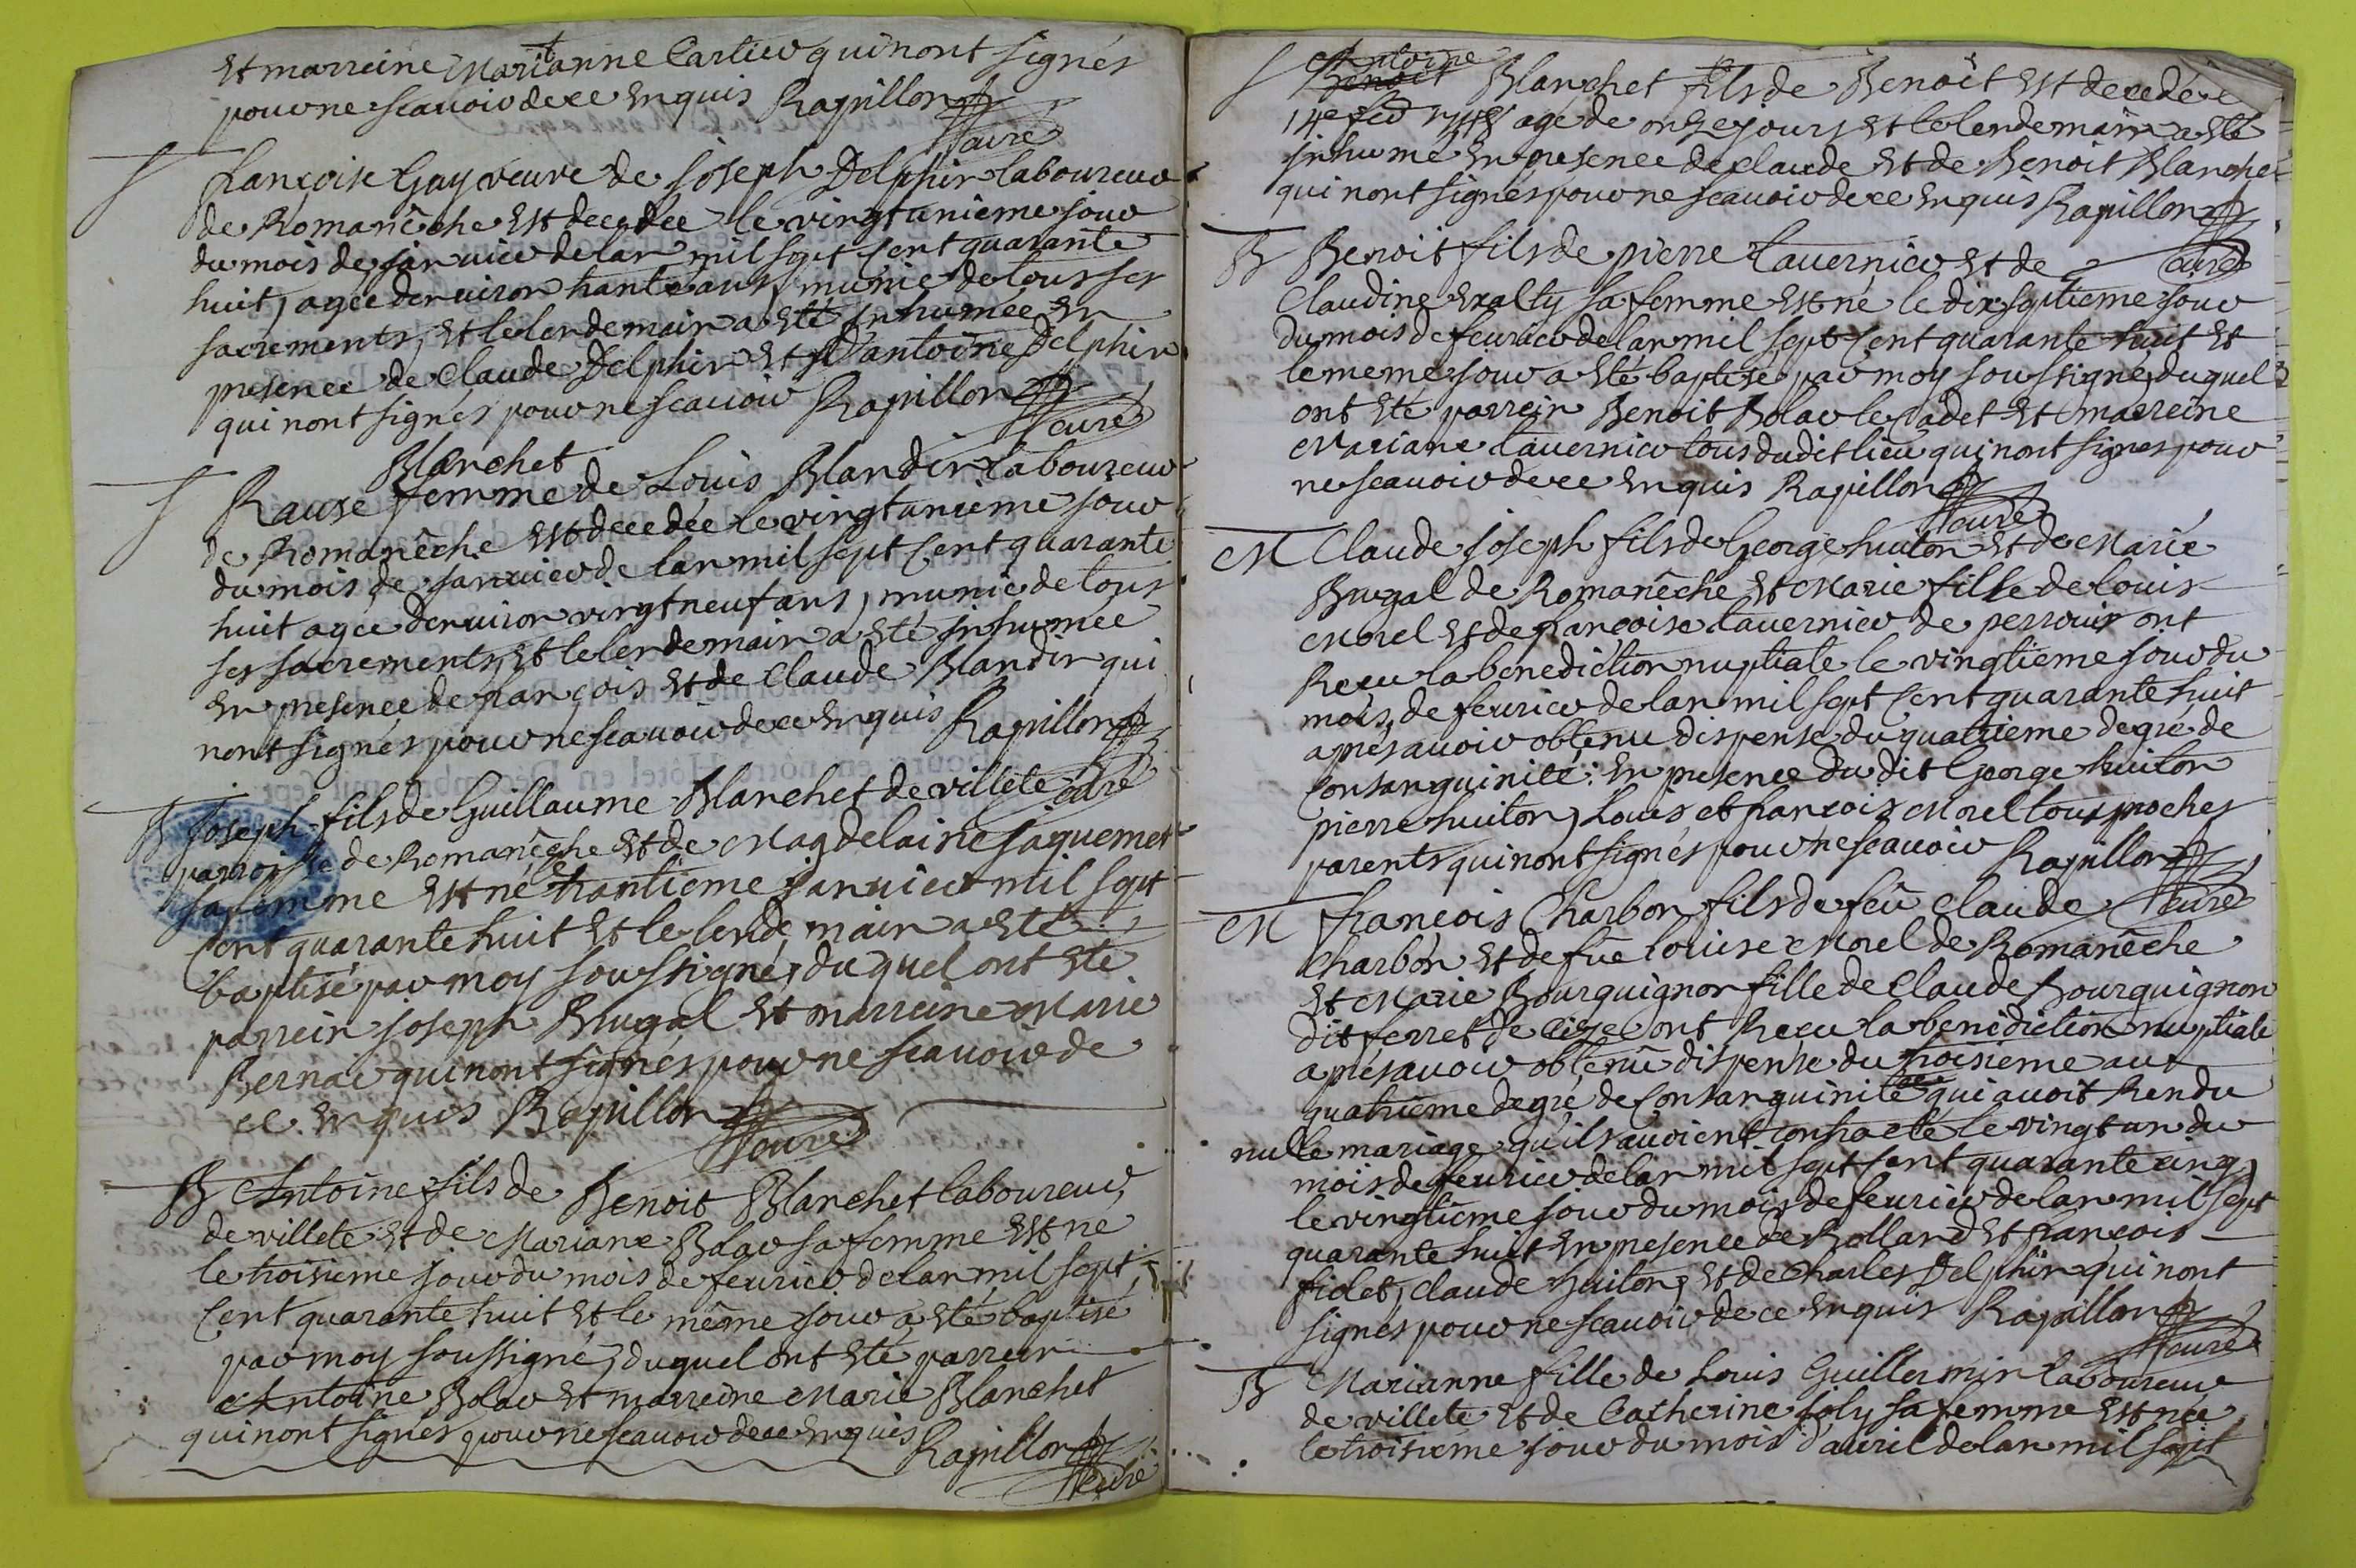 et marreine Marianne Carlier qui nont signés
pour ne scauoir de ce enquis Rapillon
curé
S francoise Guy veuve de joseph Delphin laboureur
de Romanêche est decedée le vingtunieme jour
du mois de januier de lan mil sept cent quarante
huit, agée denuiron trante ans, munie de tous ses
sacrements, et le lendemain a eté inhumée en
presence de Claude Delphin et d'antoine Delphin
qui nont signés pour ne scauoir Rapillon
curé
Blanchet
S Rause femme de Louis Blandin laboureur
de Romanêche est decedée le vingtunieme jour
du mois de januier de lan mil sept cent quarante
huit agée denuiron vingtneuf ans, munie de tous
ses sacrements, et le lendemain a eté inhumée
en presence de francois et de Claude Blandin qui
nont signés pour ne scauoir de ce enquis Rapillon
curé
B Joseph fils de Guillaume Blanchet de villete
parroisse de Romanêche et de Magdelaine jaquemet
sa femme est né le trantieme januier mil sept
cent quarante huit et le lendemain a eté
baptisé par moy soussigné, du quel ont eté
parrein joseph Brugal et marreine Marie
Bernar qui nont signés pour ne scauoir de
ce enquis Rapillon
curé
B Antoine fils de Benoit Blanchet laboureur
de villete et de Mariane Bolar sa femme est né
le troisieme jour du mois de feurier de lan mil sept
cent quarante huit et le même jour a eté baptisé
par moy soussigné, duquel ont eté parrein
Antoine Bolar et marreine Marie Blanchet
qui nont signés pour ne scauoir de ce enquis Rapillon
curé
Antoine
S Benoit Blanchet fils de Benoît est decedé le
14e feu 1748 agé de onze jours et le lendemain a eté
inhumé en presence de claude et de Benoit Blanchet
qui nont signés pour ne scauoir de ce enquis Rapillon
curé
B Benoit fils de pierre Tauernier et de
Claudine Exalty sa femme est né le dix septieme jour
du mois de feurier de lan mil sept cent quarante huit et
le meme jour a eté baptisé, par moy soussigné, duquel
ont eté parrein Benoit Bolar le Cadet et marreine
Mariane Tauernier tous dudit lieu qui nont signes pour
ne scauoir de ce enquis Rapillon
curé
M Claude joseph fils de George huiton et de Marie
Brugal de Romanêche et Marie fille de louis
Morel et de francoise Tauernier de perrouis ont
Recu la benediction nuptiale le vingtieme jour du
mois de feurier de lan mil sept cent quarante huit
aprés auoir obtenu dispense du quatrieme degré de
consanguinité: en presence du dit George huiton
pierre huiton, Louis et francois Morel tous proches
parents qui nont signés pour ne scauoir Rapillon
curé
M francois Charbon fils de feû Claude
Charbon et de fûe louise Morel de Romanêche
et Marie Bourguignon fille de Claude Bourguignon
dit ferret de Cize ont Recu la benediction nuptiale
aprés auoir obtenu dispense du troisieme au
quatrieme degré de consanguinité qui auoit Rendu
nul le mariage qu'ils auoient contracté le vingt un du
mois de feurier de lan mil sept cent quarante cinq,
le vingtieme jour du mois de feurier de lan mil sept
quarante huit en presence de Rolland et francois
fiolet, claude huiton, et de Charles Delphin qui nont
signés pour ne scauoir de ce enquis Rapillon
curé
B Marianne fille de Louis Guillermin laboureur
de villete et de Catherine joly sa femme est née
le troisieme jour du mois d'auril de lan mil sept